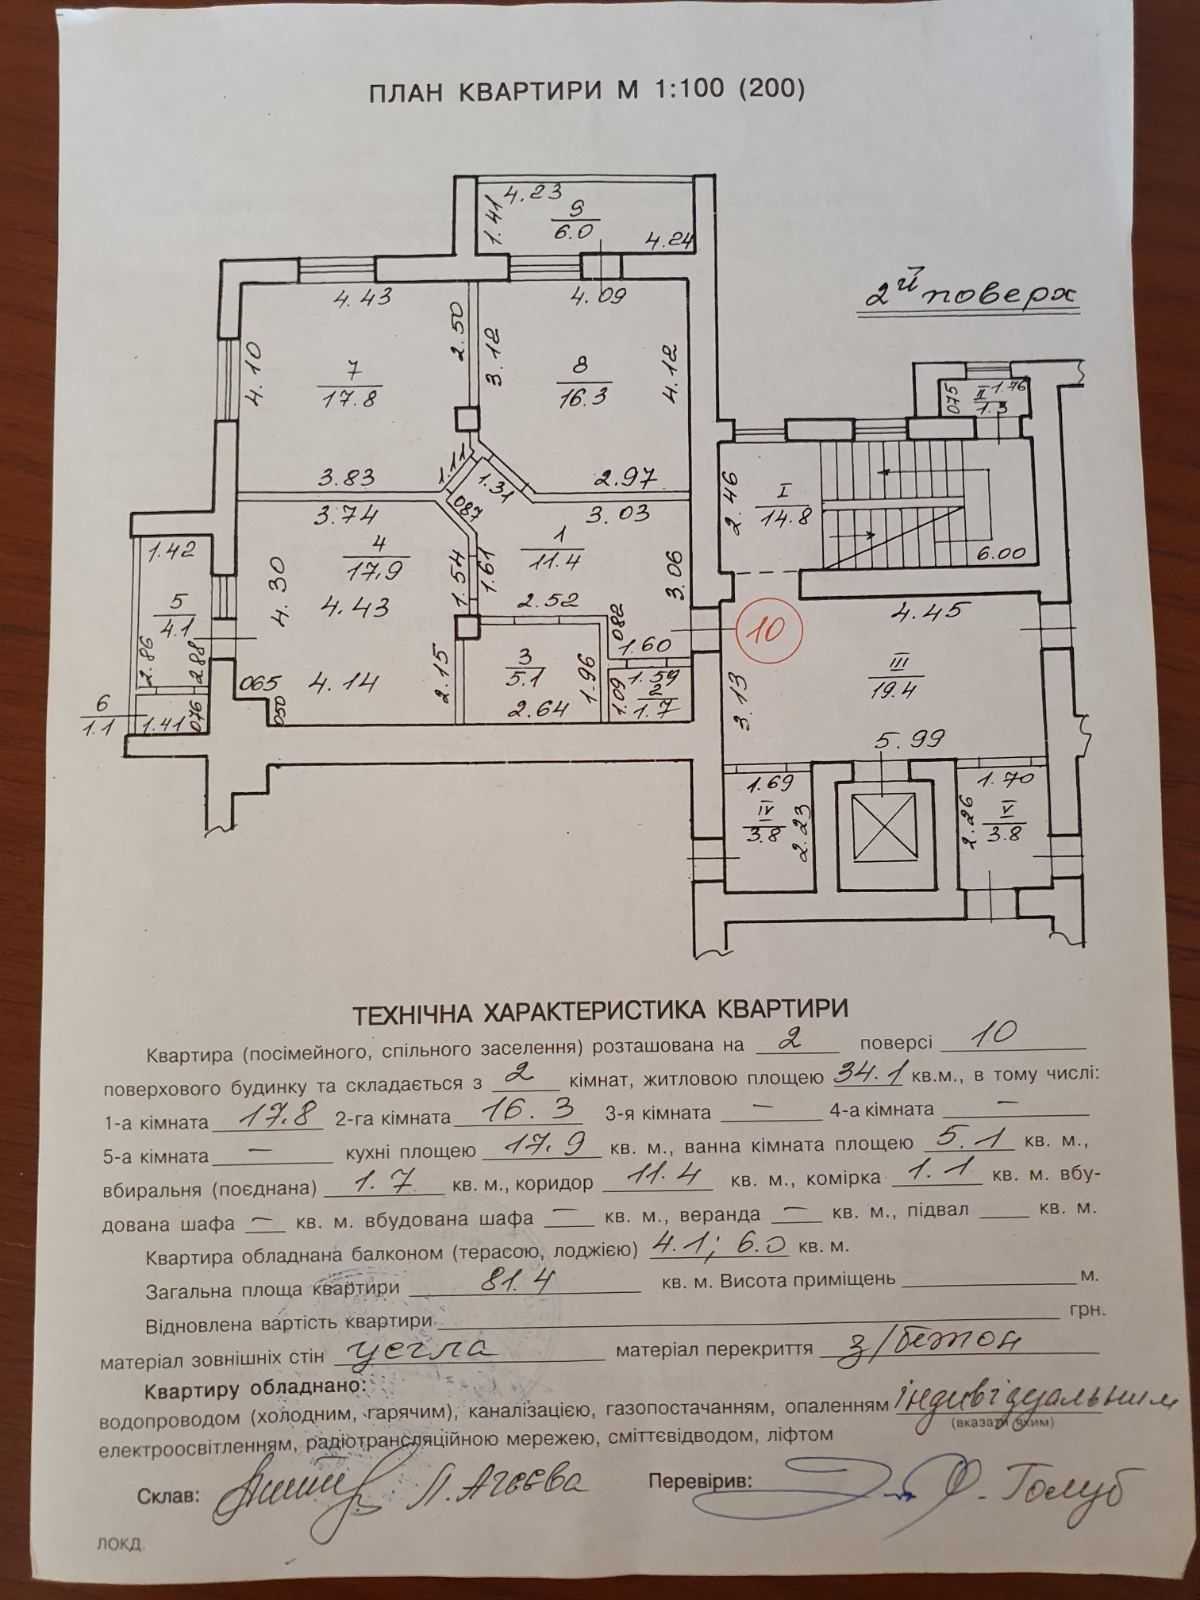 ПЛАН КВАРТИРИ М 1:100 (200)
4.23
1.41
9
6.0
4.24
2й поверх
4.43
2.50
4.09
4.10
3.12
4.12
7
17.8
8
16.3
075
II
1.76
1.3
3.83
1.11
1.31
2.97
087
3.74
3.03
2.46
I
14.8
6.00
1.42
4
17.9
1
11.4
4.30
4.43
1.54
1.61
3.06
5
4.1
2.52
082
10
4.45
2.86
2.88
1.60
III
19.4
065
4.14
2.15
3
5.1
1.96
1.59
2
1.7
1.09
3.13
6
1.1
1.41
076
050
2.64
5.99
1.69
IV
3.8
2.23
1.70
V
3.8
2.26
ТЕХНІЧНА ХАРАКТЕРИСТИКА КВАРТИРИ
Квартира (посімейного, спільного заселення) розташована на 2 поверсі 10
поверхового будинку та складається з 2 кімнат, житловою площею 34.1 кв.м., в тому числі:
1-а кімната 17.8 2-га кімната 16.3 3-я кімната – 4-а кімната –
5-а кімната – кухні площею 17.9 кв. м., ванна кімната площею 5.1 кв. м.,
вбиральня (поєднана) 1.7 кв. м., коридор 11.4 кв. м., комірка 1.1 кв. м. вбу-
дована шафа – кв. м. вбудована шафа – кв. м., веранда – кв. м., підвал ____ кв. м.
Квартира обладнана балконом (терасою, лоджією) 4.1; 6.0 кв. м.
Загальна площа квартири 81.4 кв. м. Висота приміщень ____ м.
Відновлена вартість квартири ____ грн.
матеріал зовнішніх стін цегла матеріал перекриття з/бетон
Квартиру обладнано:
водопроводом (холодним, гарячим), каналізацією, газопостачанням, опаленням індивідуальним
(вказати яким)
електроосвітленням, радіотрансляційною мережею, сміттєвідводом, ліфтом
Склав: Л. Агєєва Перевірив: Ф. Голуб
ЛОКД